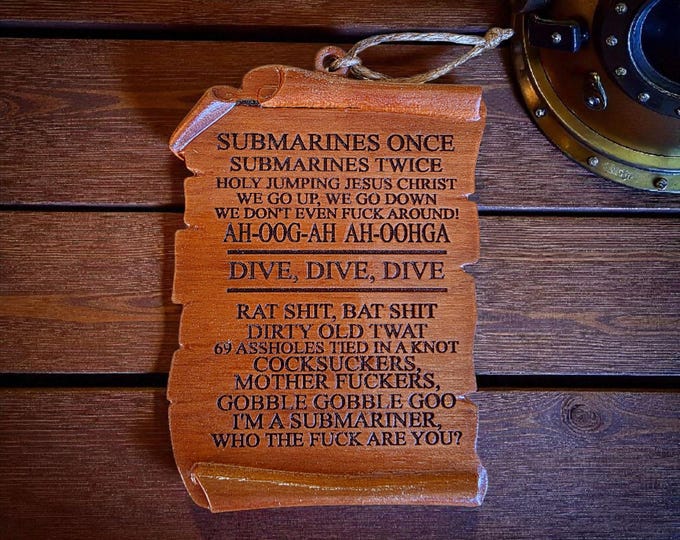 SUBMARINES ONCE
SUBMARINES TWICE
HOLY JUMPING JESUS CHRIST
WE GO UP, WE GO DOWN
WE DON'T EVEN FUCK AROUND!
AH-OOG-AH AH-OOHGA
DIVE, DIVE, DIVE
RAT SHIT, BAT SHIT
DIRTY OLD TWAT
69 ASSHOLES TIED IN A KNOT
COCKSUCKERS,
MOTHER FUCKERS,
GOBBLE GOBBLE GOO
I'M A SUBMARINER,
WHO THE FUCK ARE YOU?